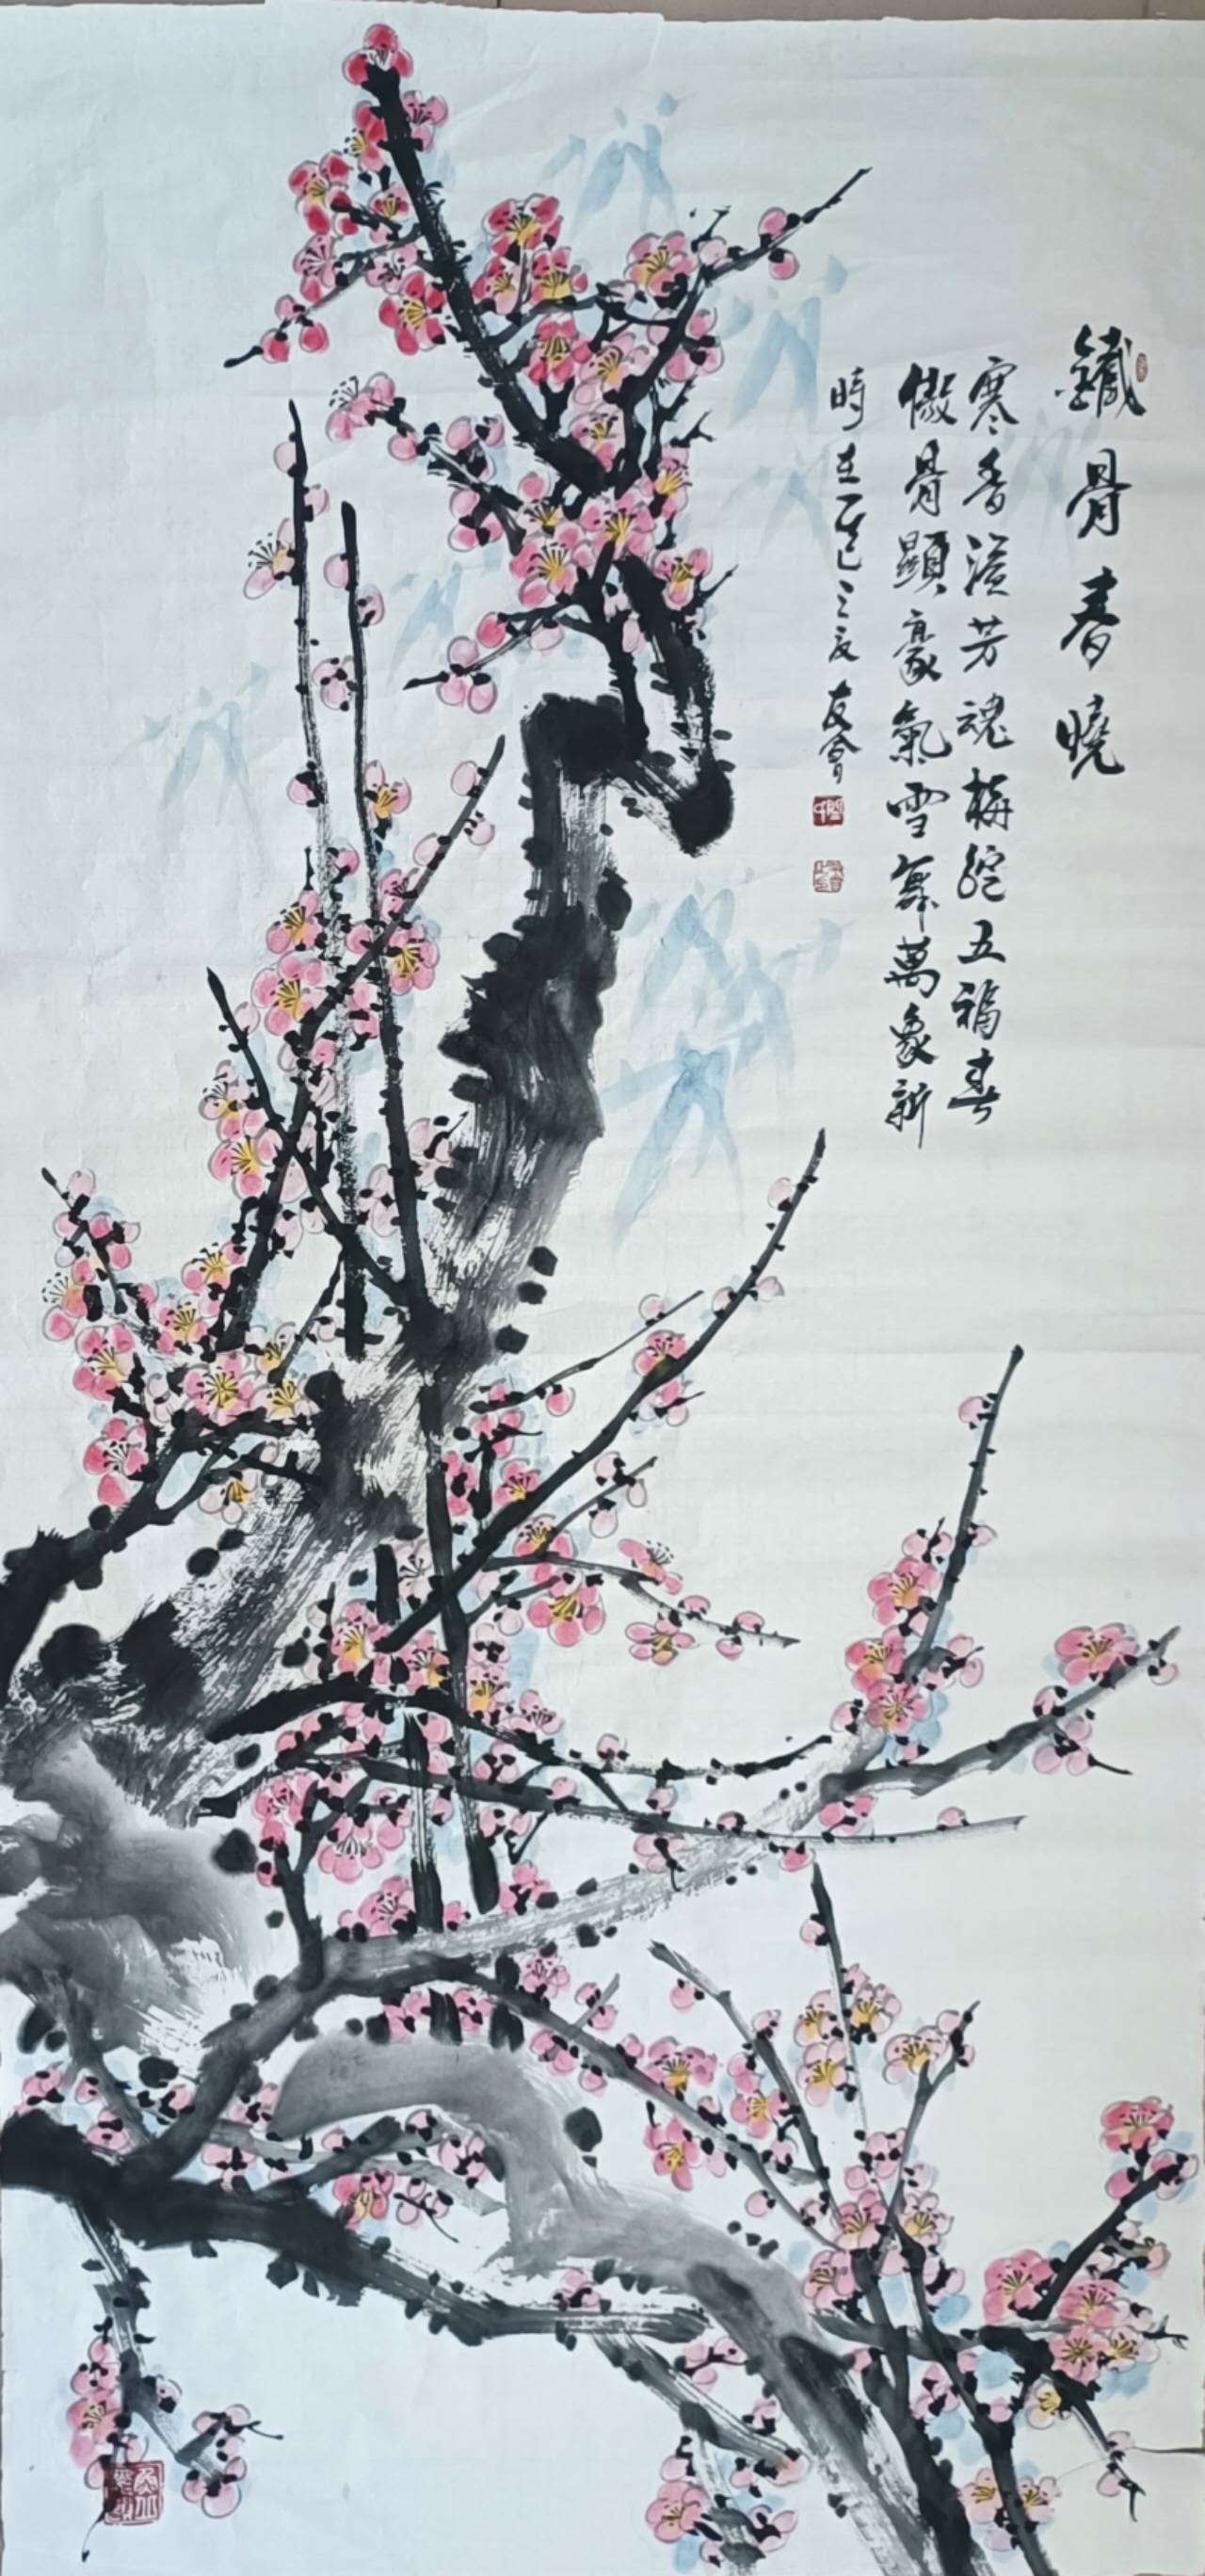 鐵骨春曉
寒香溢芳魂梅綻五福春
傲骨顯豪氣雪舞萬象新
時在乙巳之夏友會